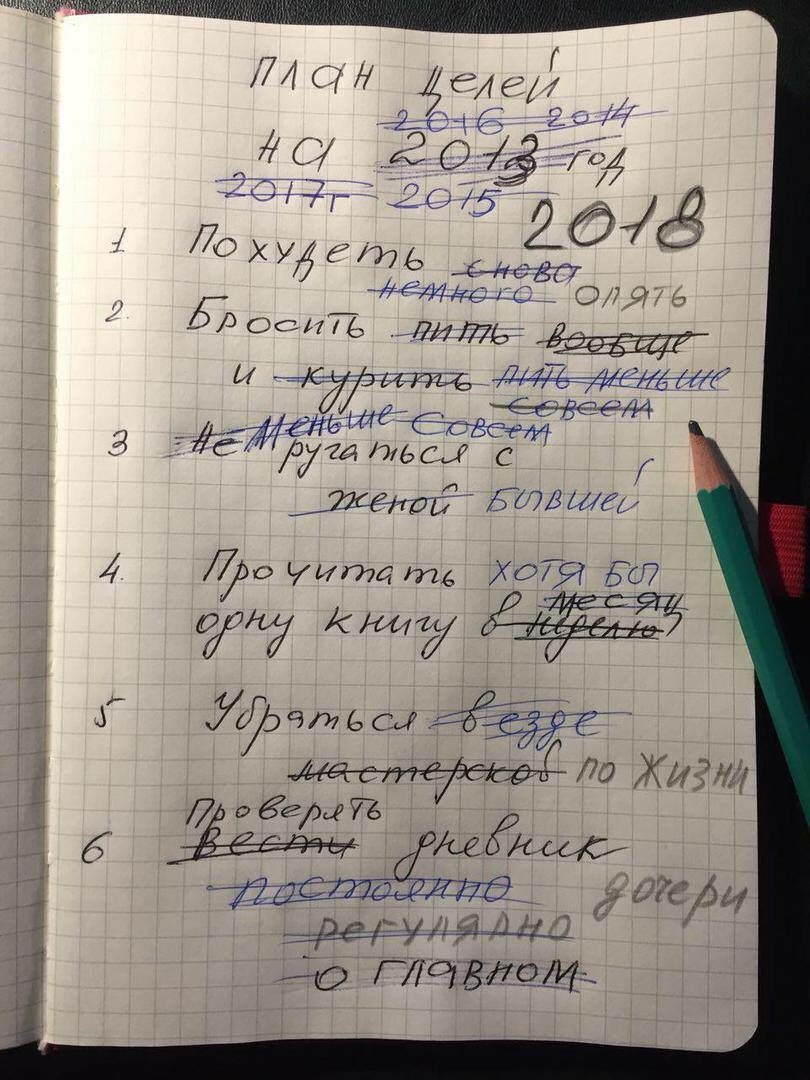 план целей
2016 2014
на 2013 год
2017г 2015
2018
1 Похудеть снова
немного опять
2. Бросить пить вообще
и курить пить меньше
совсем
меньше совсем
3 Не ругаться с
женой бывшей
4. Прочитать хотя бы
месяц
одну книгу в неделю
5 Убраться везде
мастерской по жизни
Проверять
6 Вести дневник
постоянно дочери
регулярно
о главном